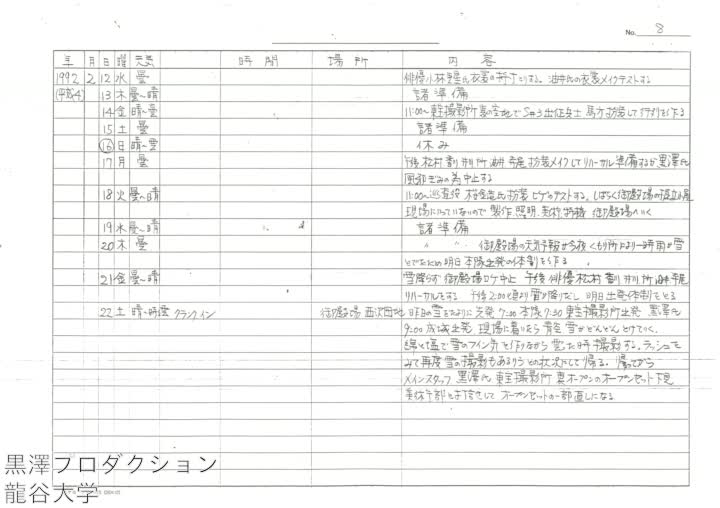 No. 8
年 月 日 曜 天気 時間 場所 内容
1992 2 12 水 曇 俳優小林 氏衣裳の打合せする。油井氏の衣裳メイクテストする
(平成4) 13 木 曇〜晴 諸準備
14 金 晴〜曇 11:00〜東宝撮影所裏の空地で 出征兵士 馬方扮装して を作る
15 土 曇 諸準備
16 日 晴〜曇 休み
17 月 曇 午後 松村 香川 井川 所 油井 寺尾 扮装メイクしてリハーサル準備するが黒澤氏
風邪ぎみの為中止する
18 火 曇〜晴 11:00〜 扮装 ヒゲのテストする。しばらく御殿場の
現場に いないので 製作、照明、美術、特機 御殿場へいく
19 水 晴〜曇 諸準備
20 木 曇 〃 〃 御殿場の天気予報が今夜くもり所により一時雨か雪
とでたため明日本隊出発の体制を作る
21 金 曇〜晴 雪降らず 御殿場ロケ中止 午後 俳優 松村 香川 井川 所 油井 寺尾
リハーサルをする 午後2:00頃より雪が降りだし 明日出発体制をとる
22 土 晴〜時々曇 クランクイン 御殿場 西次団地 昨日の雪をたよりに 先発 7:00 本隊 7:30 東宝撮影所出発 黒澤氏
9:00 成城出発 現場に着いたら 青空 雪がどんどんとけていく。
綿と塩で雪の を作りながら 曇った時撮影する。ラッシュを
みて再度雪の撮影もあるうるとの状況にして帰る。帰ってから
メインスタッフ 黒澤氏 東宝撮影所 裏オープンのオープンセット下見
美術 部と打合せして オープンセットの一部直しになる
黒澤プロダクション
龍谷大学